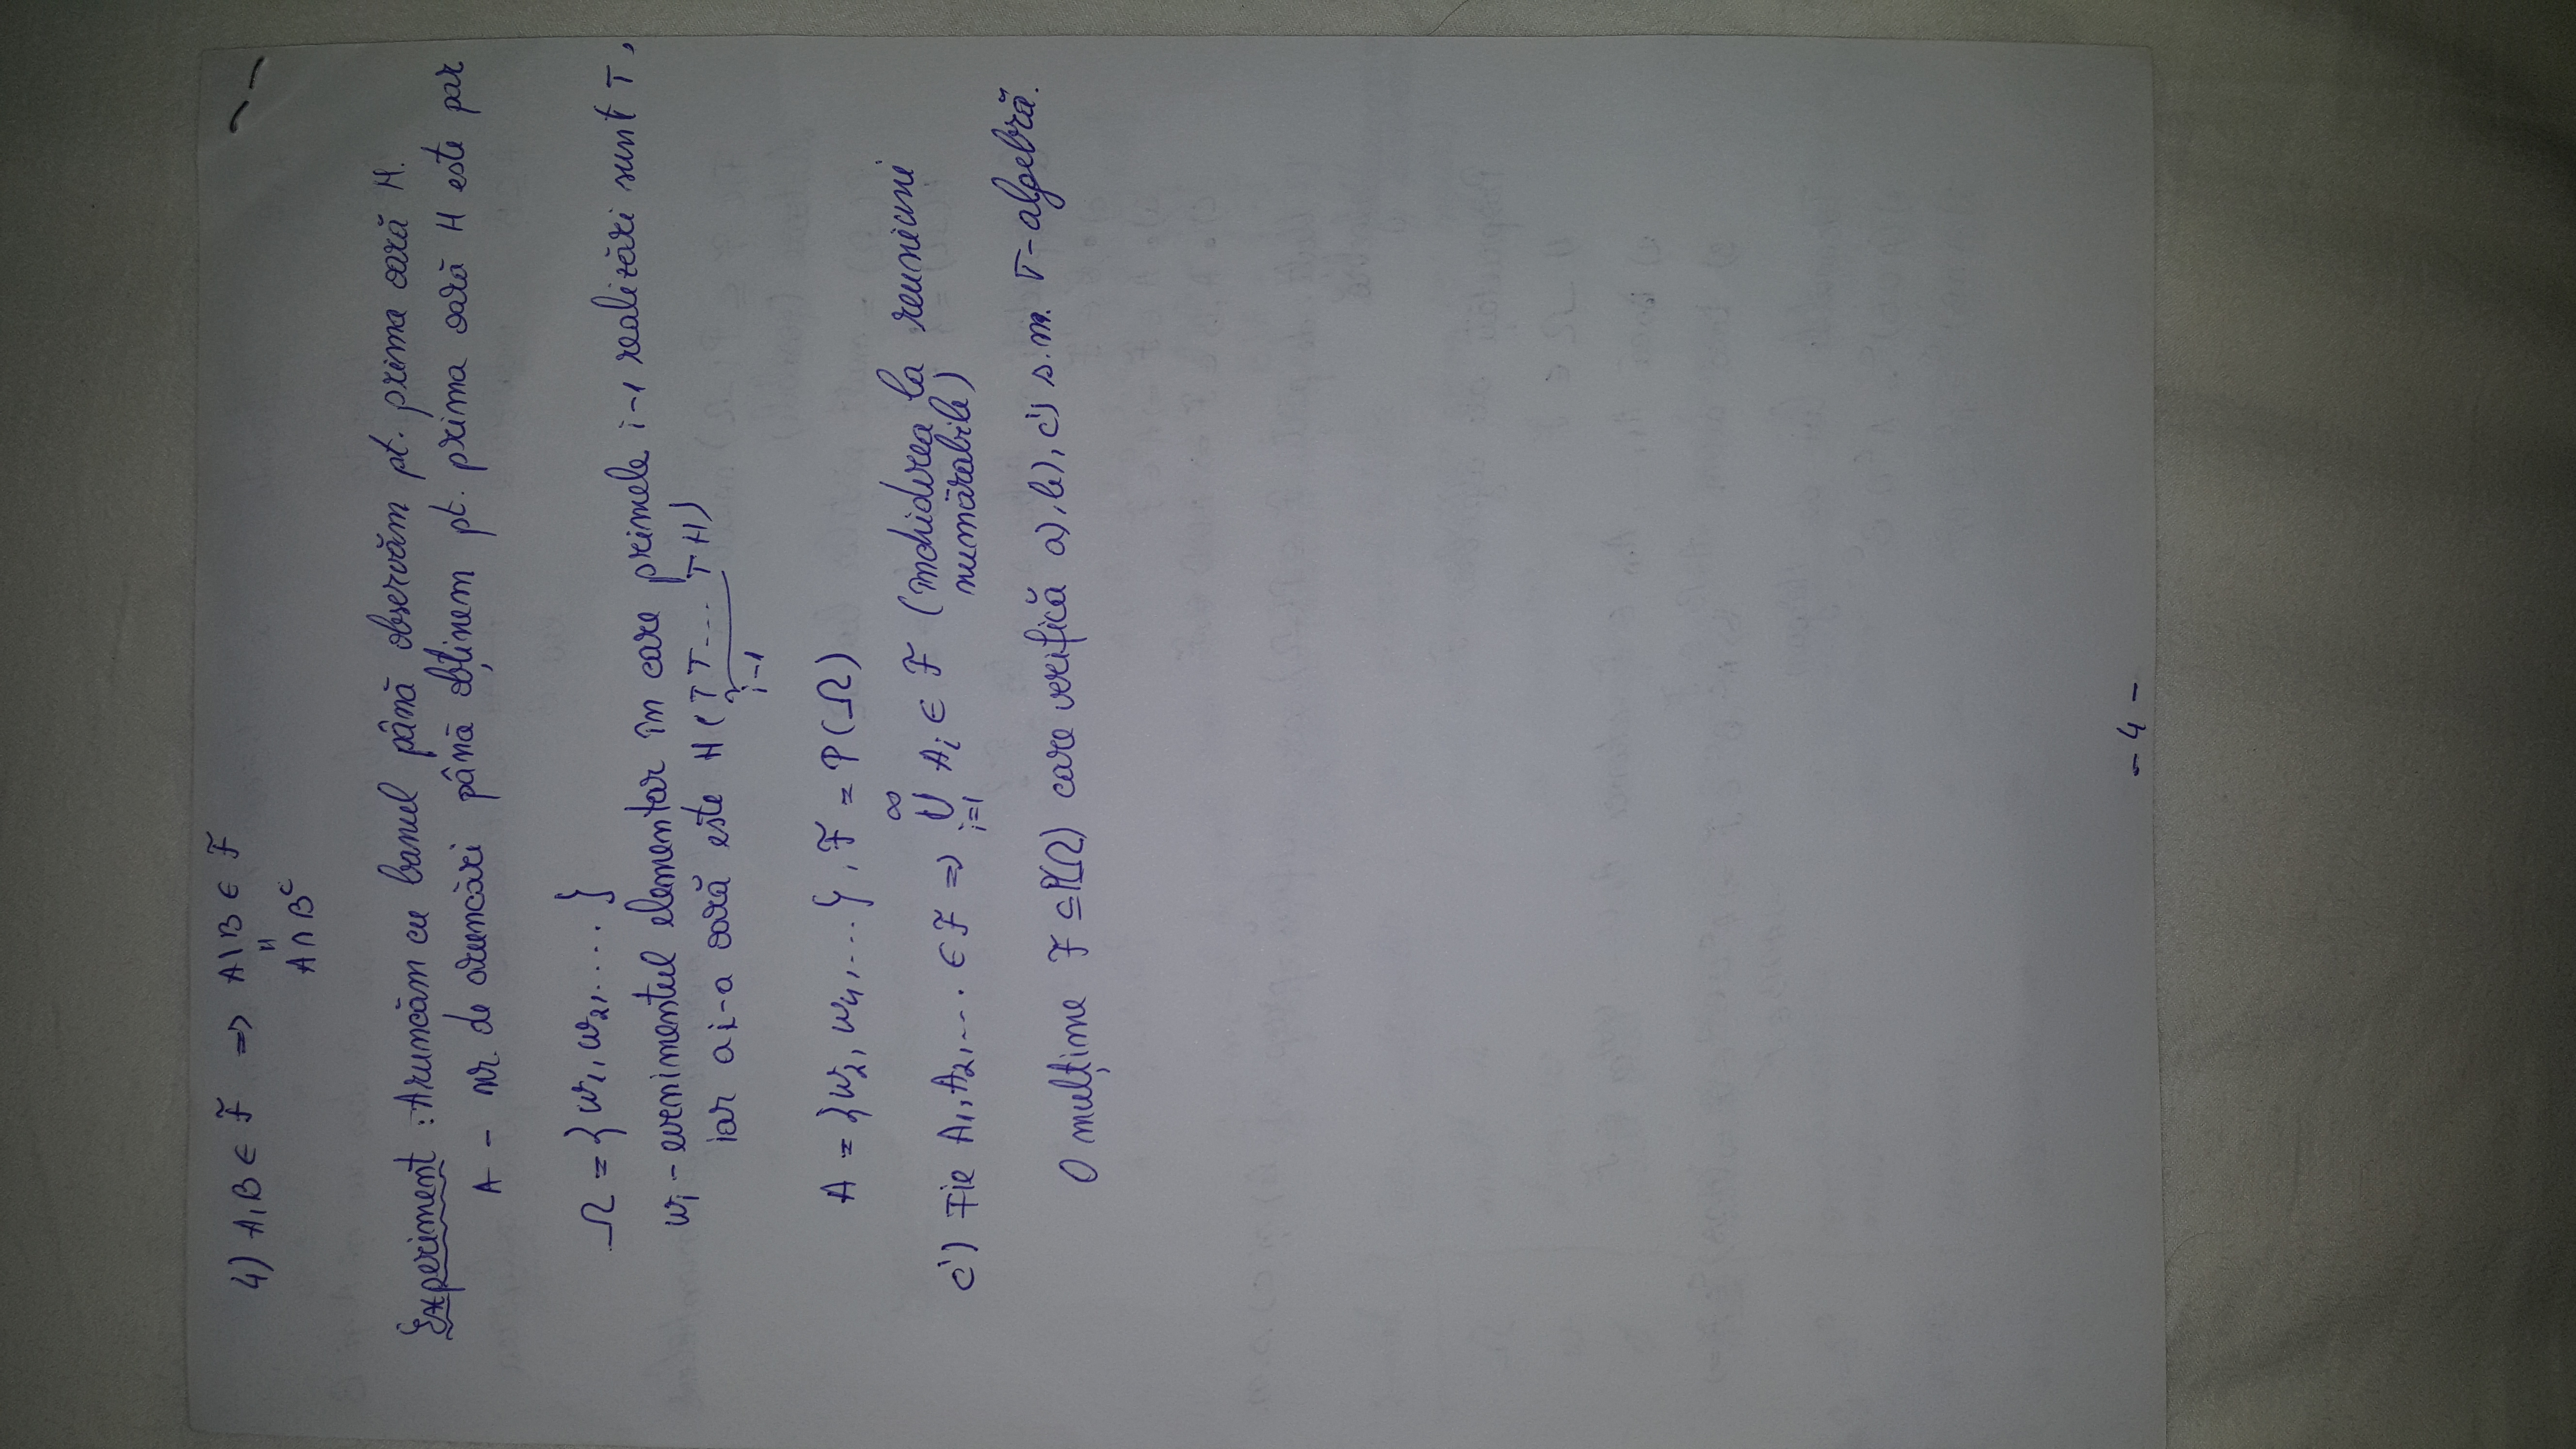 4) A,B ∈ F ⇒ A\B ∈ F
"
A∩B^c
Experiment : Aruncăm cu banul până observăm pt. prima oară H.
A - nr. de aruncări până obținem pt. prima oară H este par
Ω = {w1, w2, .... }
wi - evenimentul elementar în care primele i-1 realizări sunt T,
iar a i-a oară este H (T T ... T H)
i-1
A = {w2, w4, ... }, F = P(Ω)
∞
c') Fie A1, A2, ... ∈ F ⇒ ∪ Ai ∈ F (închiderea la reuniuni
i=1 numărabile)
O mulțime F ⊆ P(Ω) care verifică a), b), c') s.m. σ-algebră.
- 4 -